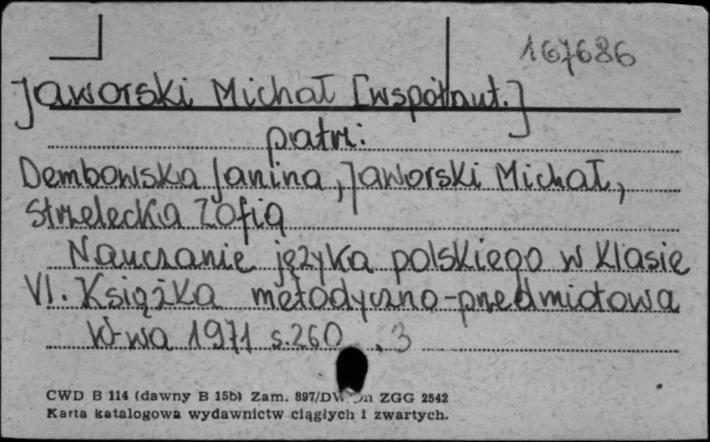 167686
Jaworski Michał [współaut.]
patrz:
Dembowska Janina, Jaworski Michał,
Strzelecka Zofia
Nauczanie języka polskiego w klasie
VI. Książka metodyczno-przedmiotowa
W-wa 1971 s.260 , 3
CWD B 114 (dawny B 15b) Zam. 897/DW ZGG 2542
Karta katalogowa wydawnictw ciągłych i zwartych.